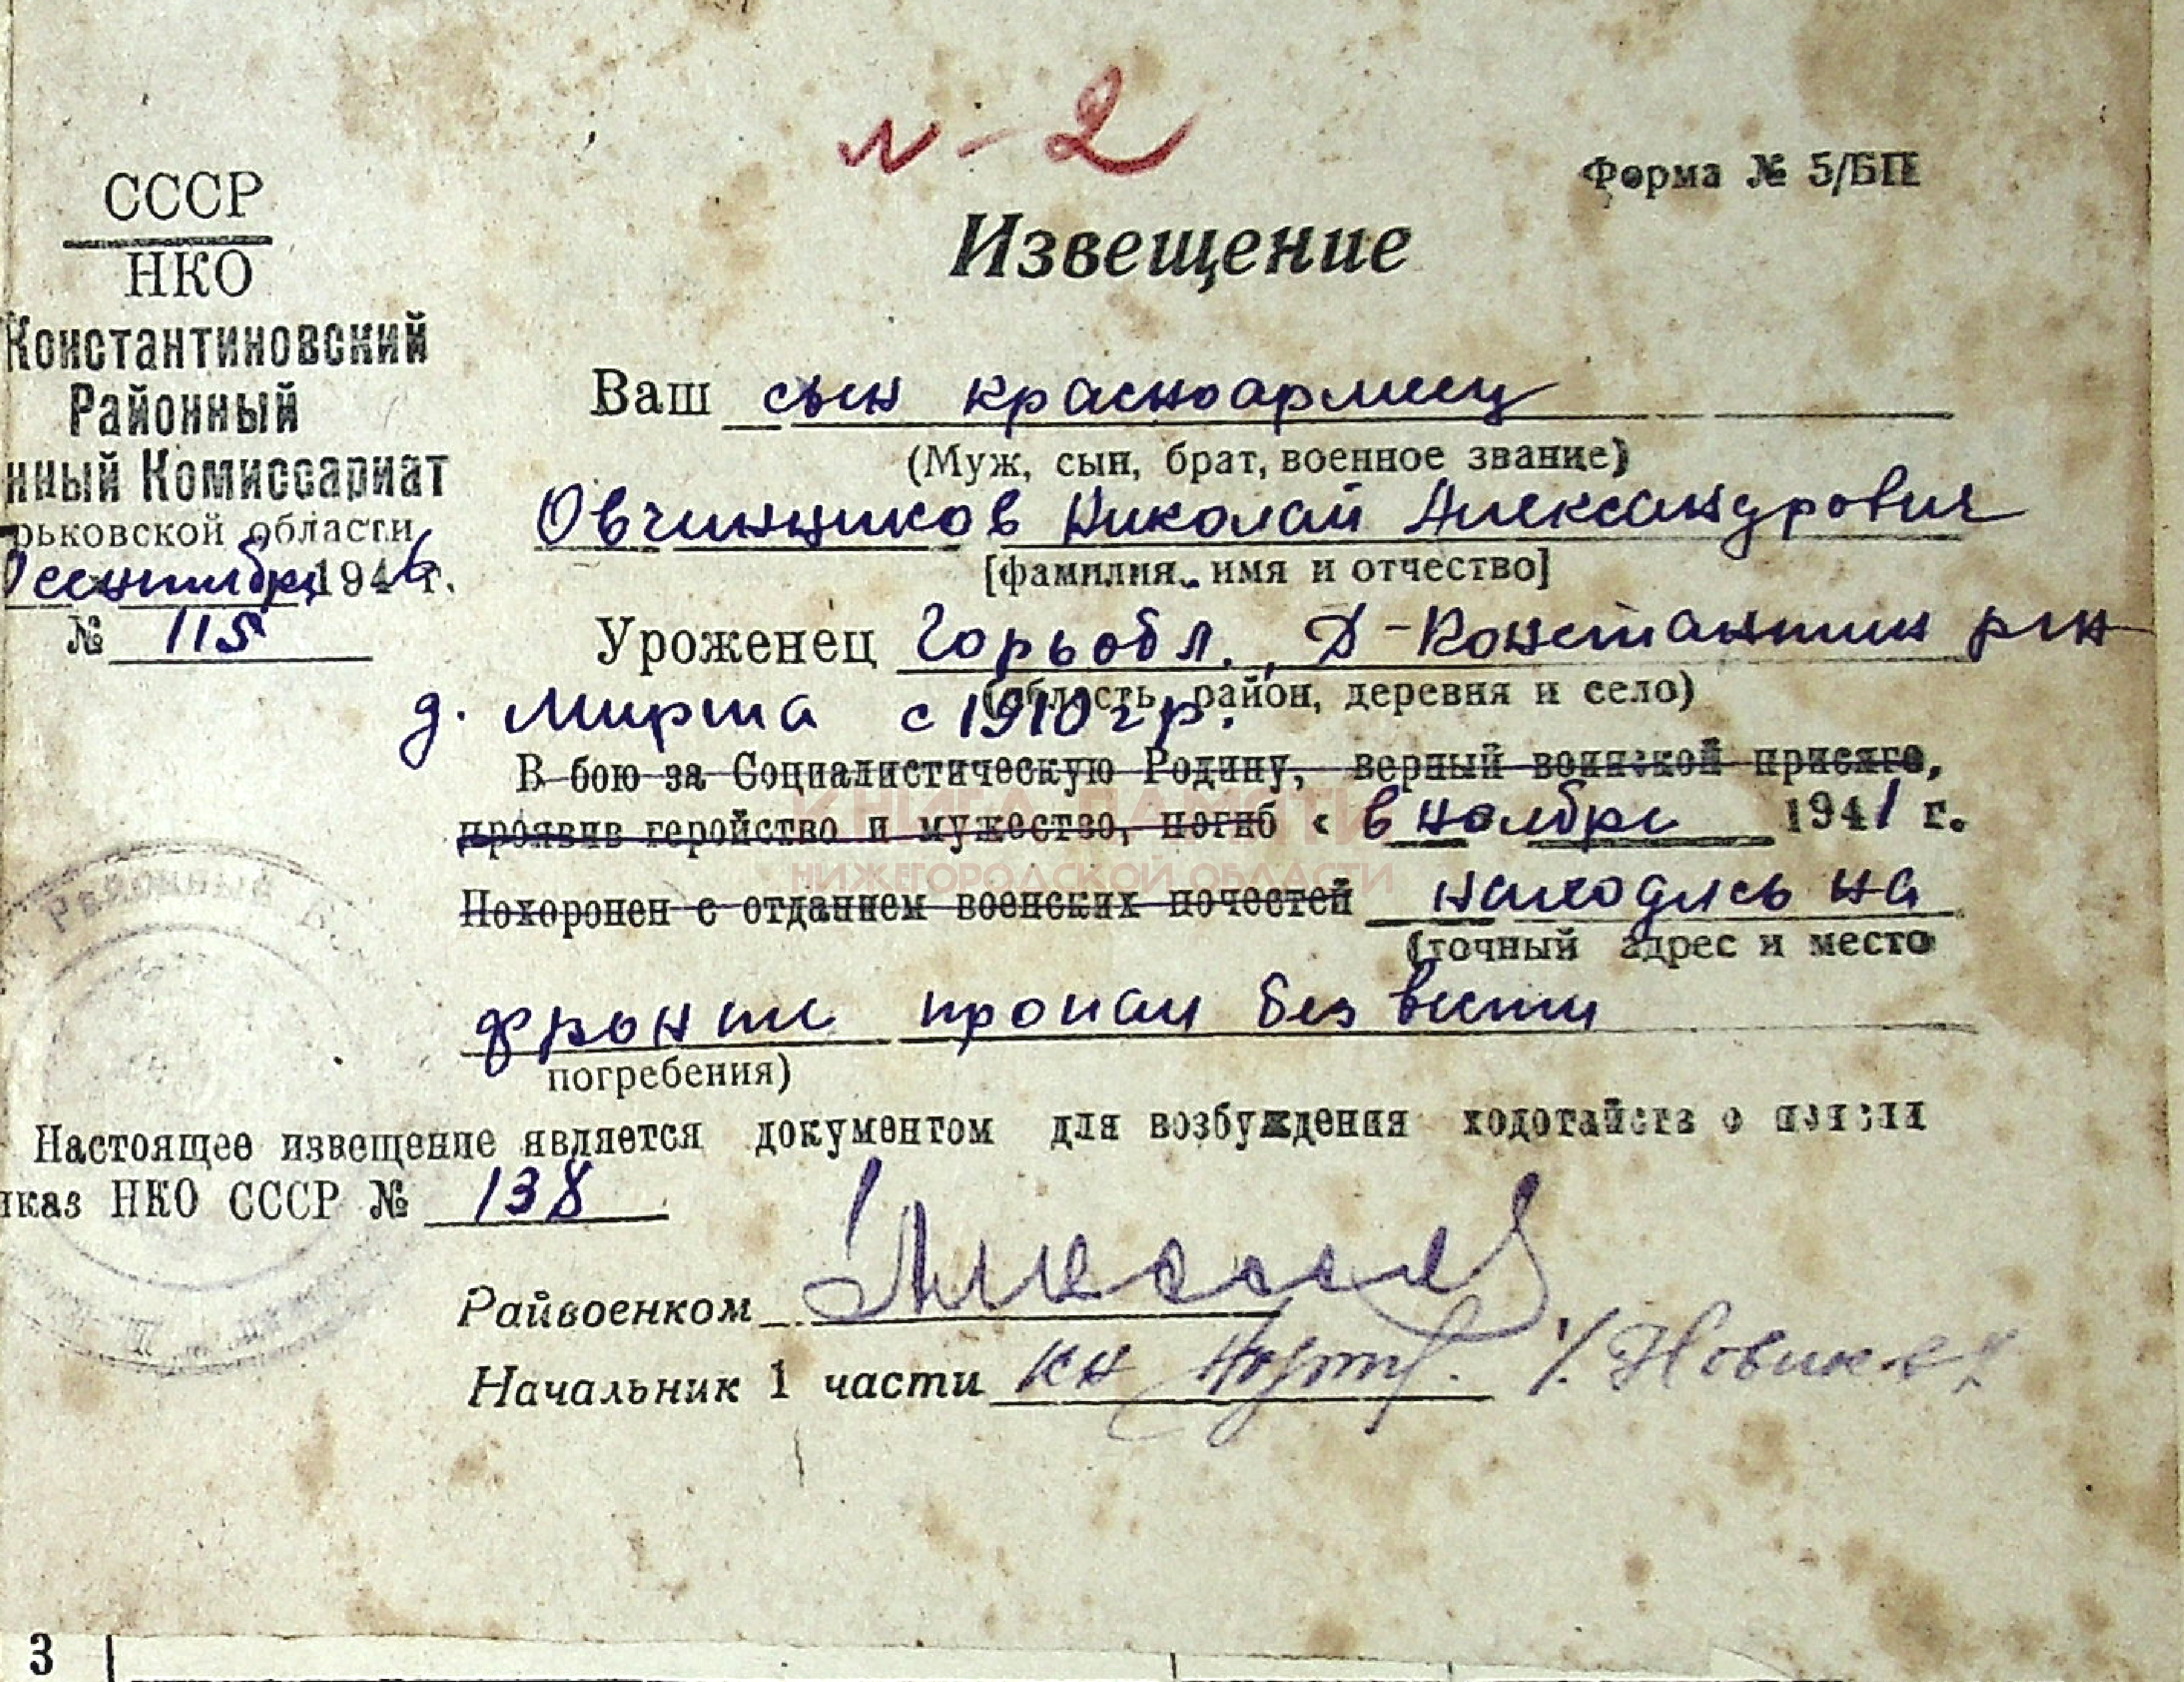 N-2
Форма № 5/БП
СССР
НКО
Константиновский
Районный
нный Комиссариат
рьковской области
сентября 1946 г.
№ 115
Извещение
Ваш сын красноармеец
(Муж, сын, брат, военное звание)
Овчинников Николай Александрович
[фамилия, имя и отчество]
Уроженец Горьобл., Д-Константин р-н
(область, район, деревня и село)
д. Мирта с 1910 г р.
В бою за Социалистическую Родину, верный воинской присяге,
проявив геройство и мужество, погиб « в ноябре 1941 г.
Похоронен с отданием военских почестей находясь на
(точный адрес и место
фронте пропал без вести
погребения)
Настоящее извещение является документом для возбуждения ходотайств о
иказ НКО СССР № 138
Райвоенком
Начальник 1 части
КНИГА ПАМЯТИ
НИЖЕГОРОДСКОЙ ОБЛАСТИ
3